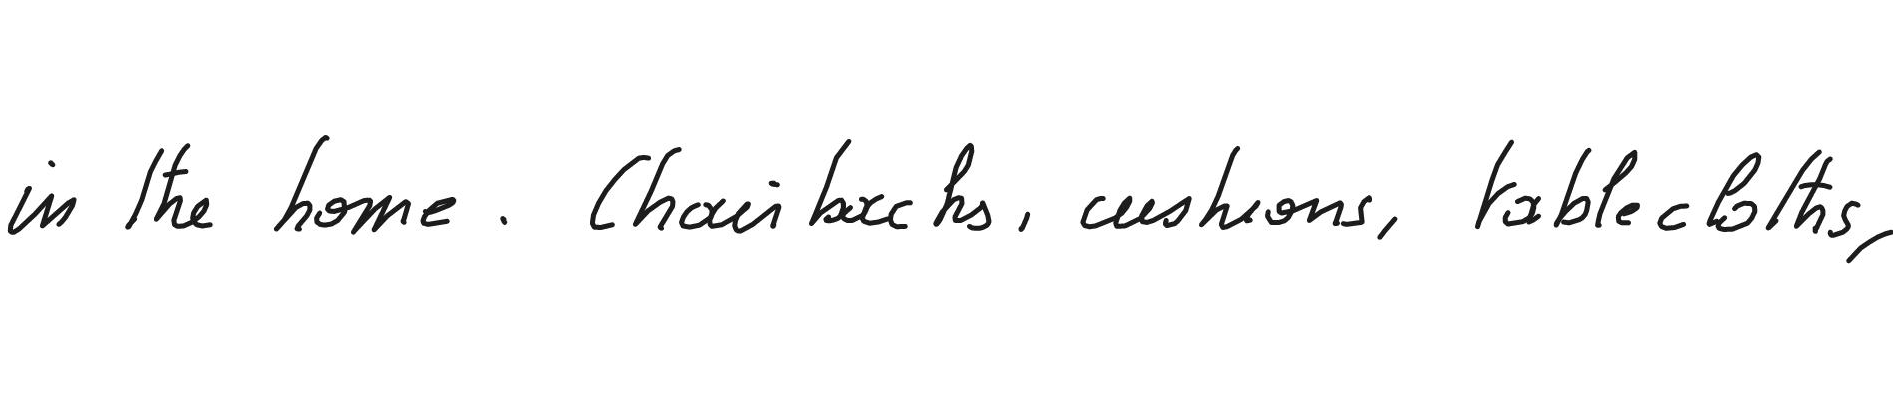 in the home. Chairbacks, cushions, tablecloths,